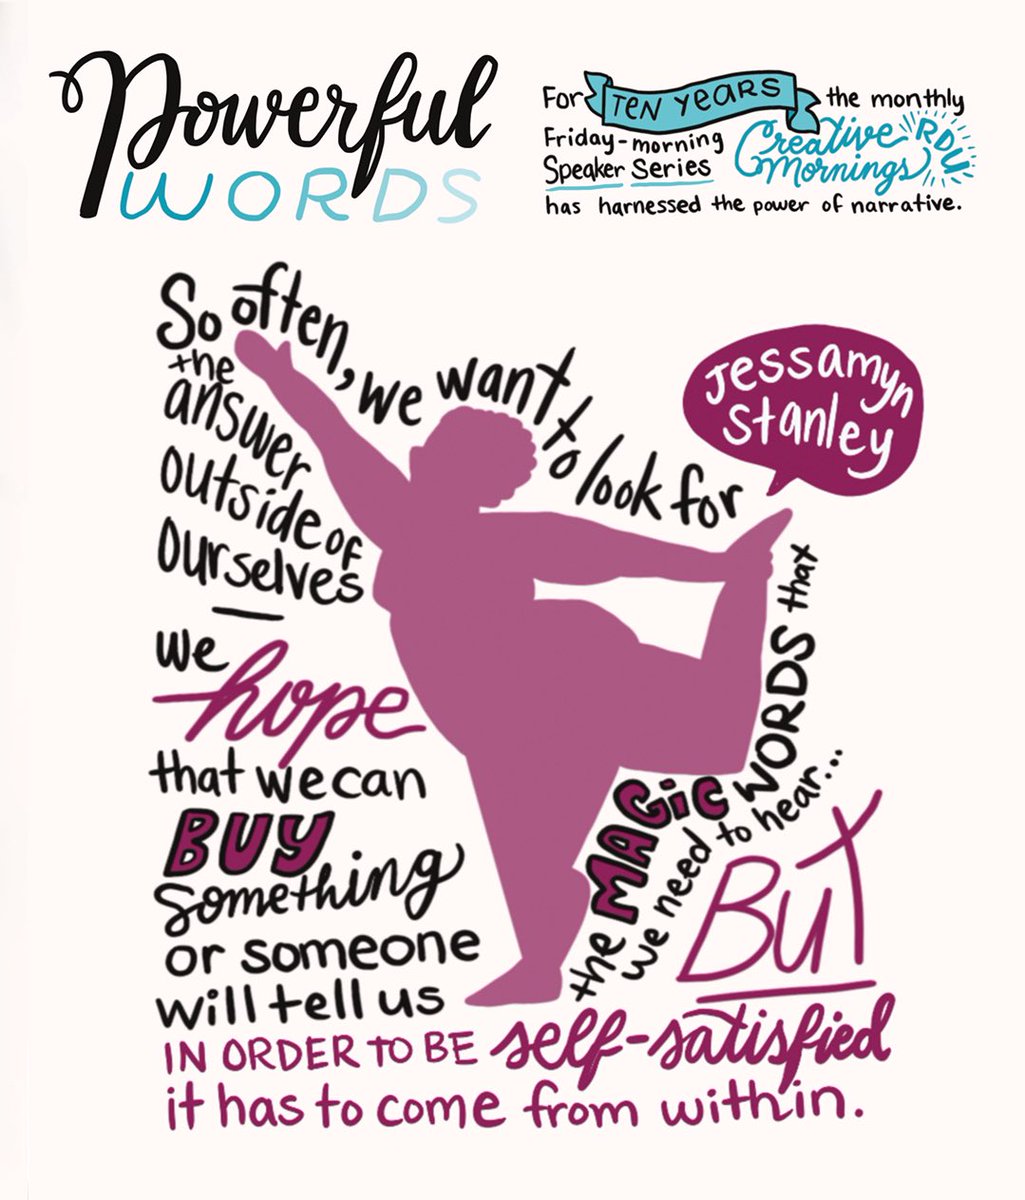 Powerful
WORDS
For TEN YEARS the monthly
Friday-morning
Speaker Series
Creative
Mornings
RDU
has harnessed the power of narrative.
Jessamyn
Stanley
So often, we want to look for
the
answer
outside of
ourselves
—
we
hope
that we can
BUY
something
or someone
will tell us
the MAGiC WORDS that
we need to hear...
BUT
IN ORDER TO BE self-satisfied
it has to come from within.